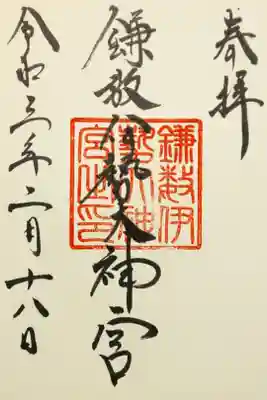 奉拝
鎌数伊勢大神宮
鎌数伊
勢大神
宮之印
令和三年二月十八日